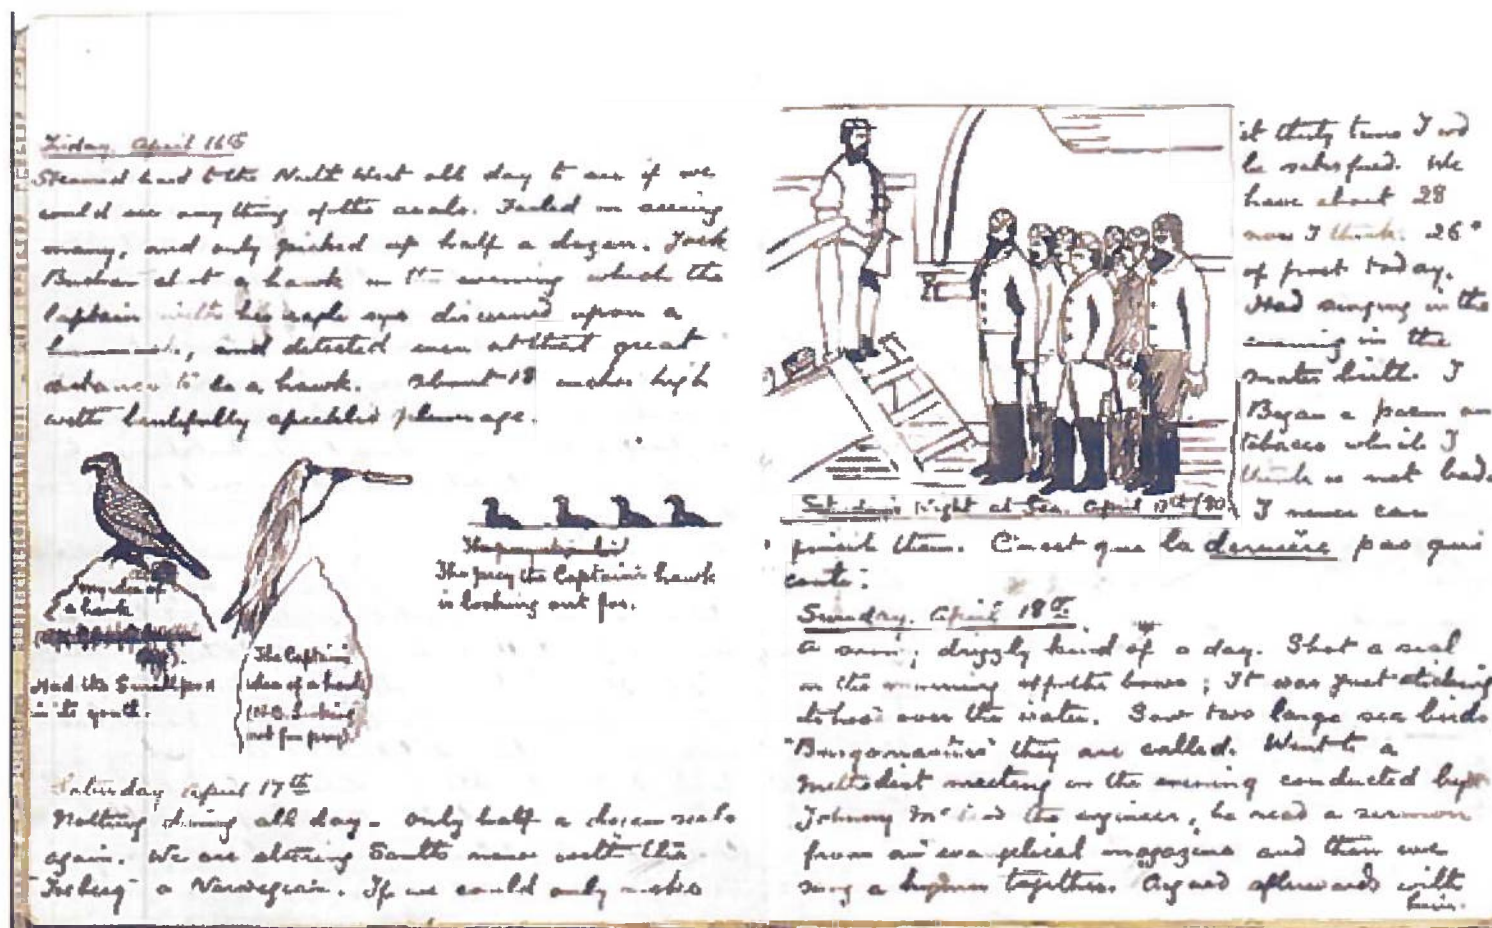 Friday, April 16th
Steamed hard to the North West all day to see if we
could see anything of the seals. Failed in seeing
many, and only picked up half a dozen. Jack
Buchan shot a hawk in the evening which the
Captain with his eagle eyes discerned upon a
hummock, and detected even at that great
distance to be a hawk. About 18 inches high
with beautifully speckled plumage.
My idea of
a hawk
Had the Smallpox
in its youth.
The Captain's
idea of a hawk
(N.B. Looking
out for prey)
The prey
The prey the Captain's hawk
is looking out for.
Saturday April 17th
Nothing doing all day. Only half a dozen seals
again. We are steering South now with the
"Iceberg" a Norwegian. If we could only make
it thirty tuns I wd
be satisfied. We
have about 28
now I think. 26°
of frost today.
Had singing in the
evening in the
mates berth. I
Began a poem on
tobacco which I
think is not bad.
I never can
Saturday Night at Sea. April 17th/80
finish them. C'est que la dernière pas qui
coute.
Sunday. April 18th.
A drizzly kind of a day. Shot a seal
in the morning off the bows; It was just sticking
its nose over the water. Saw two large sea birds
"Burgomasters" they are called. Went to a
Methodist meeting in the evening conducted by
Johnny McLeod the engineer, he read a sermon
from an evangelical magazine and then we
sung a hymn together. Argued afterwards with
him.